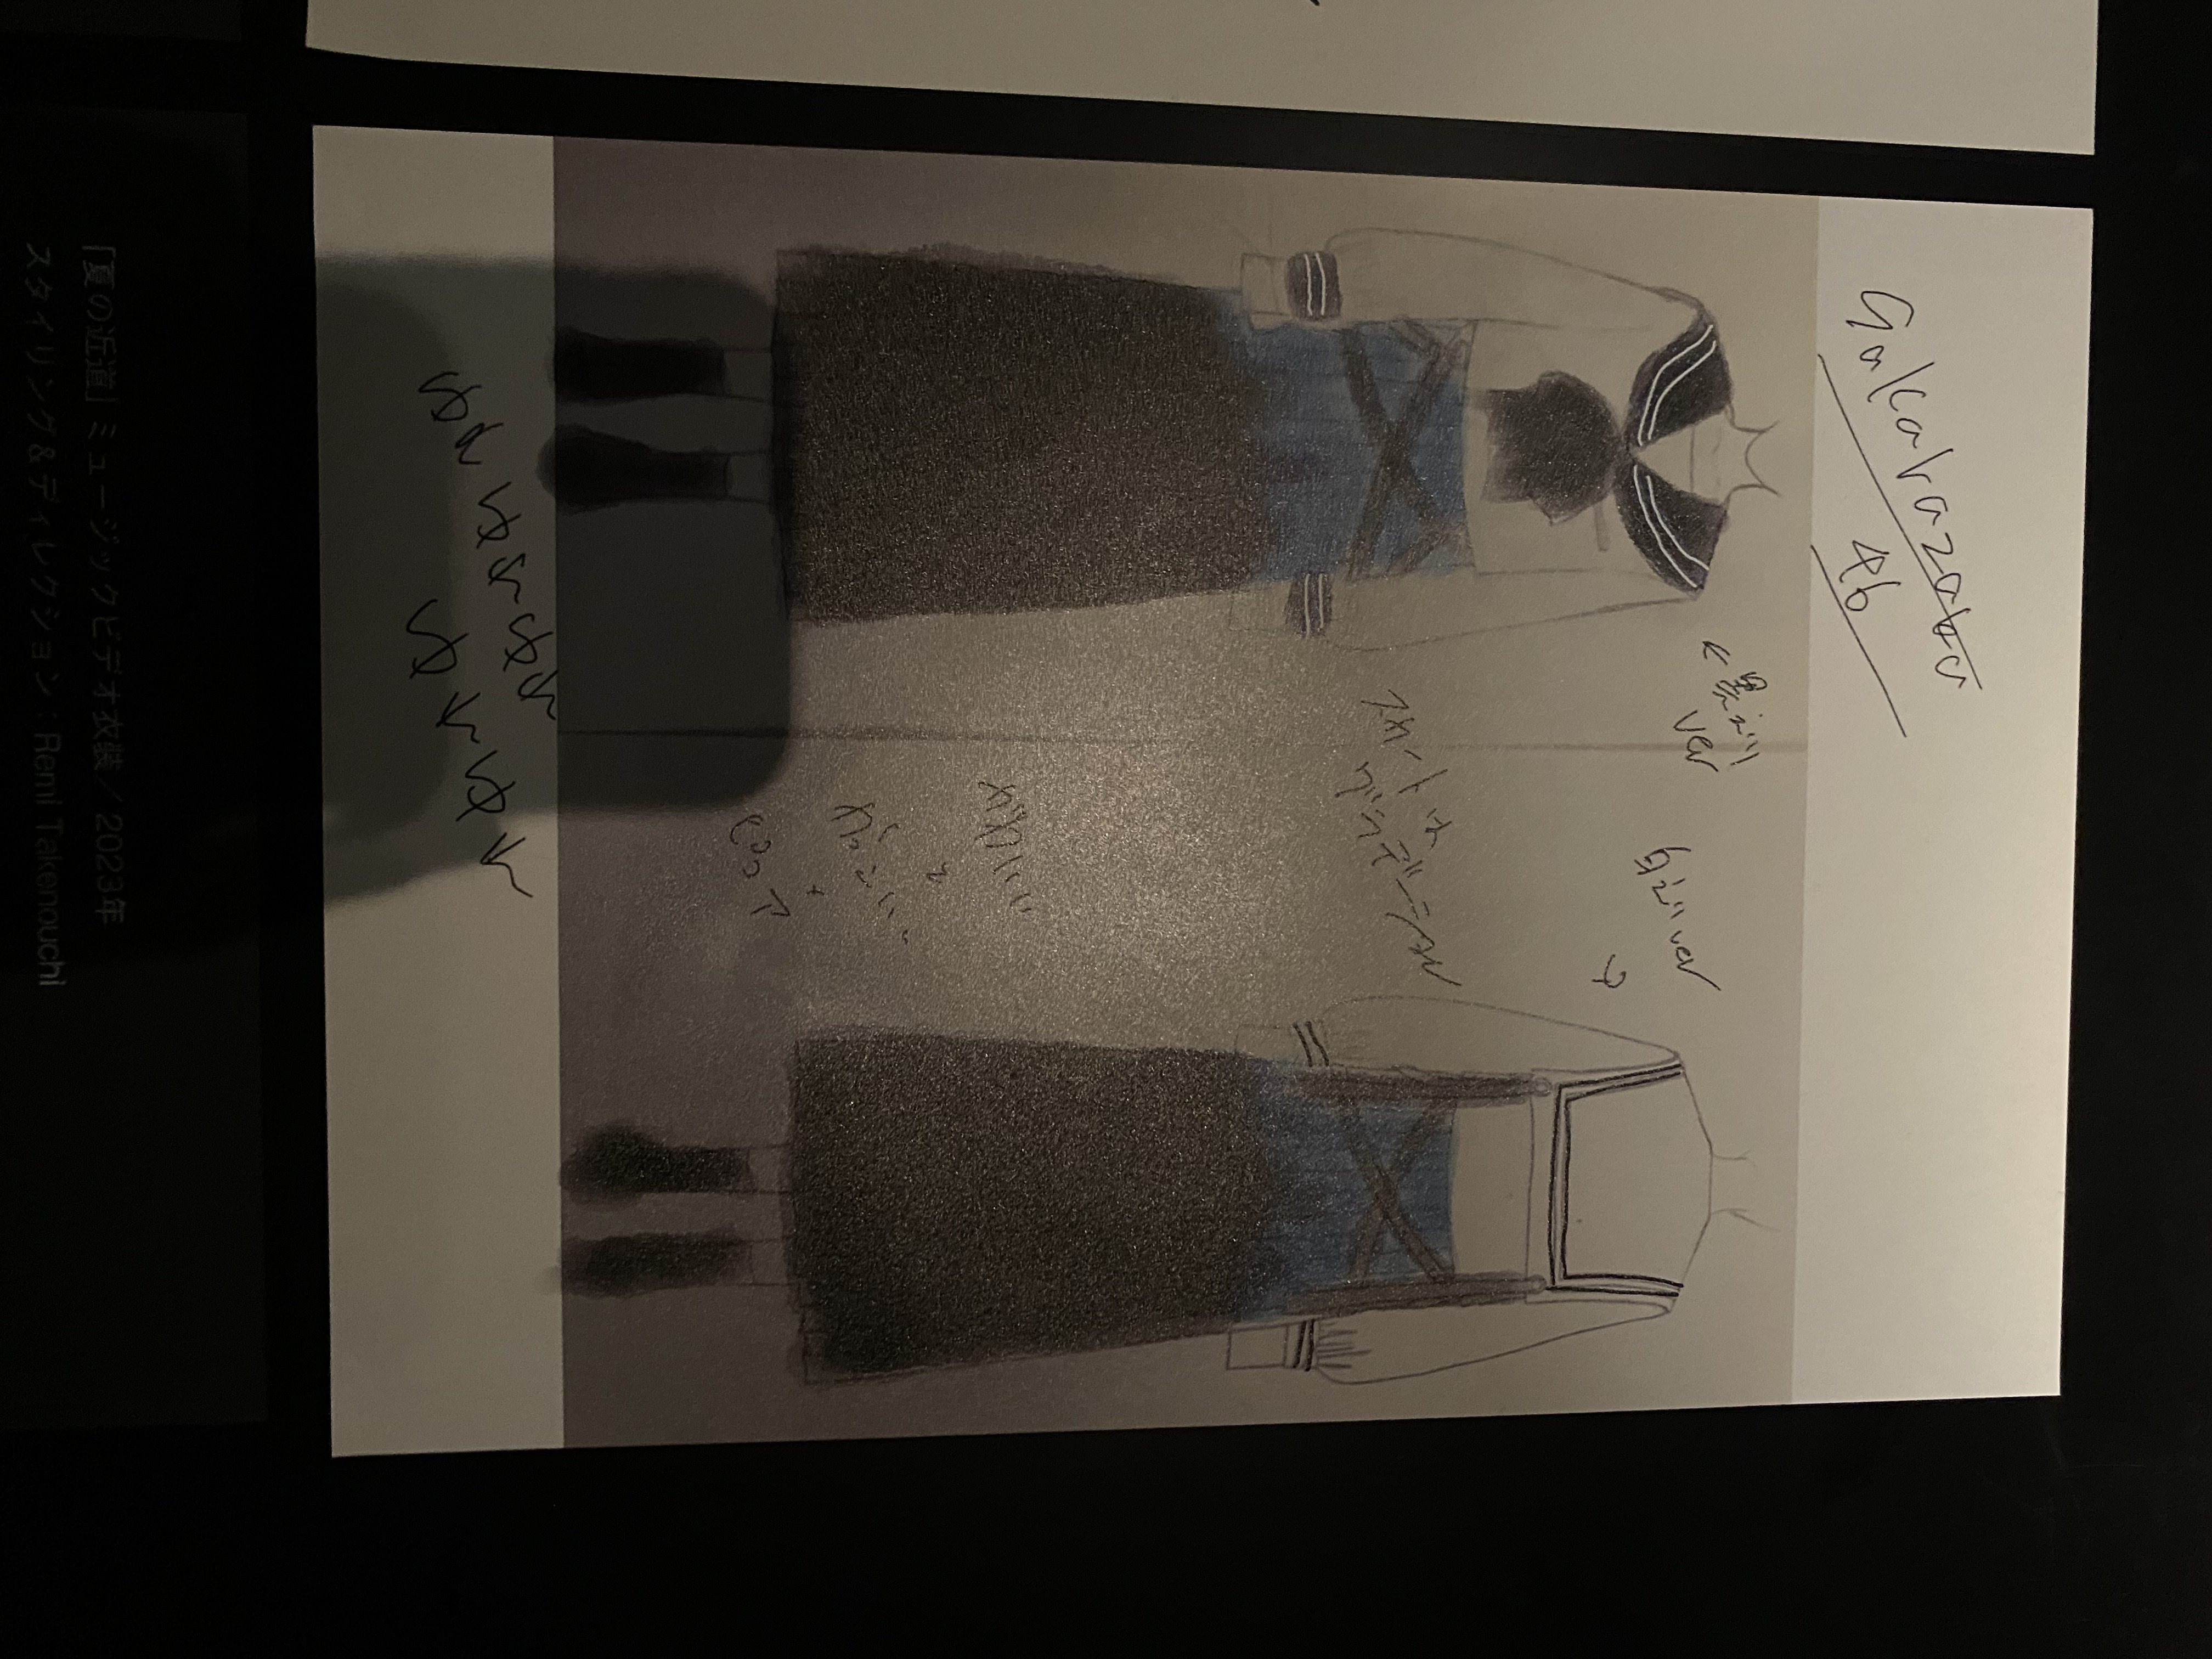 Sakurazaka
46
←黒えり
ver
白えりver
スカートは
グラデーション
かわいい
と
かっこいい
+
ピュア
ゆれゆれゆれ
ゆれゆれ
「夏の近道」ミュージックビデオ衣装/2023年
スタイリング&ディレクション:Remi Takenouchi